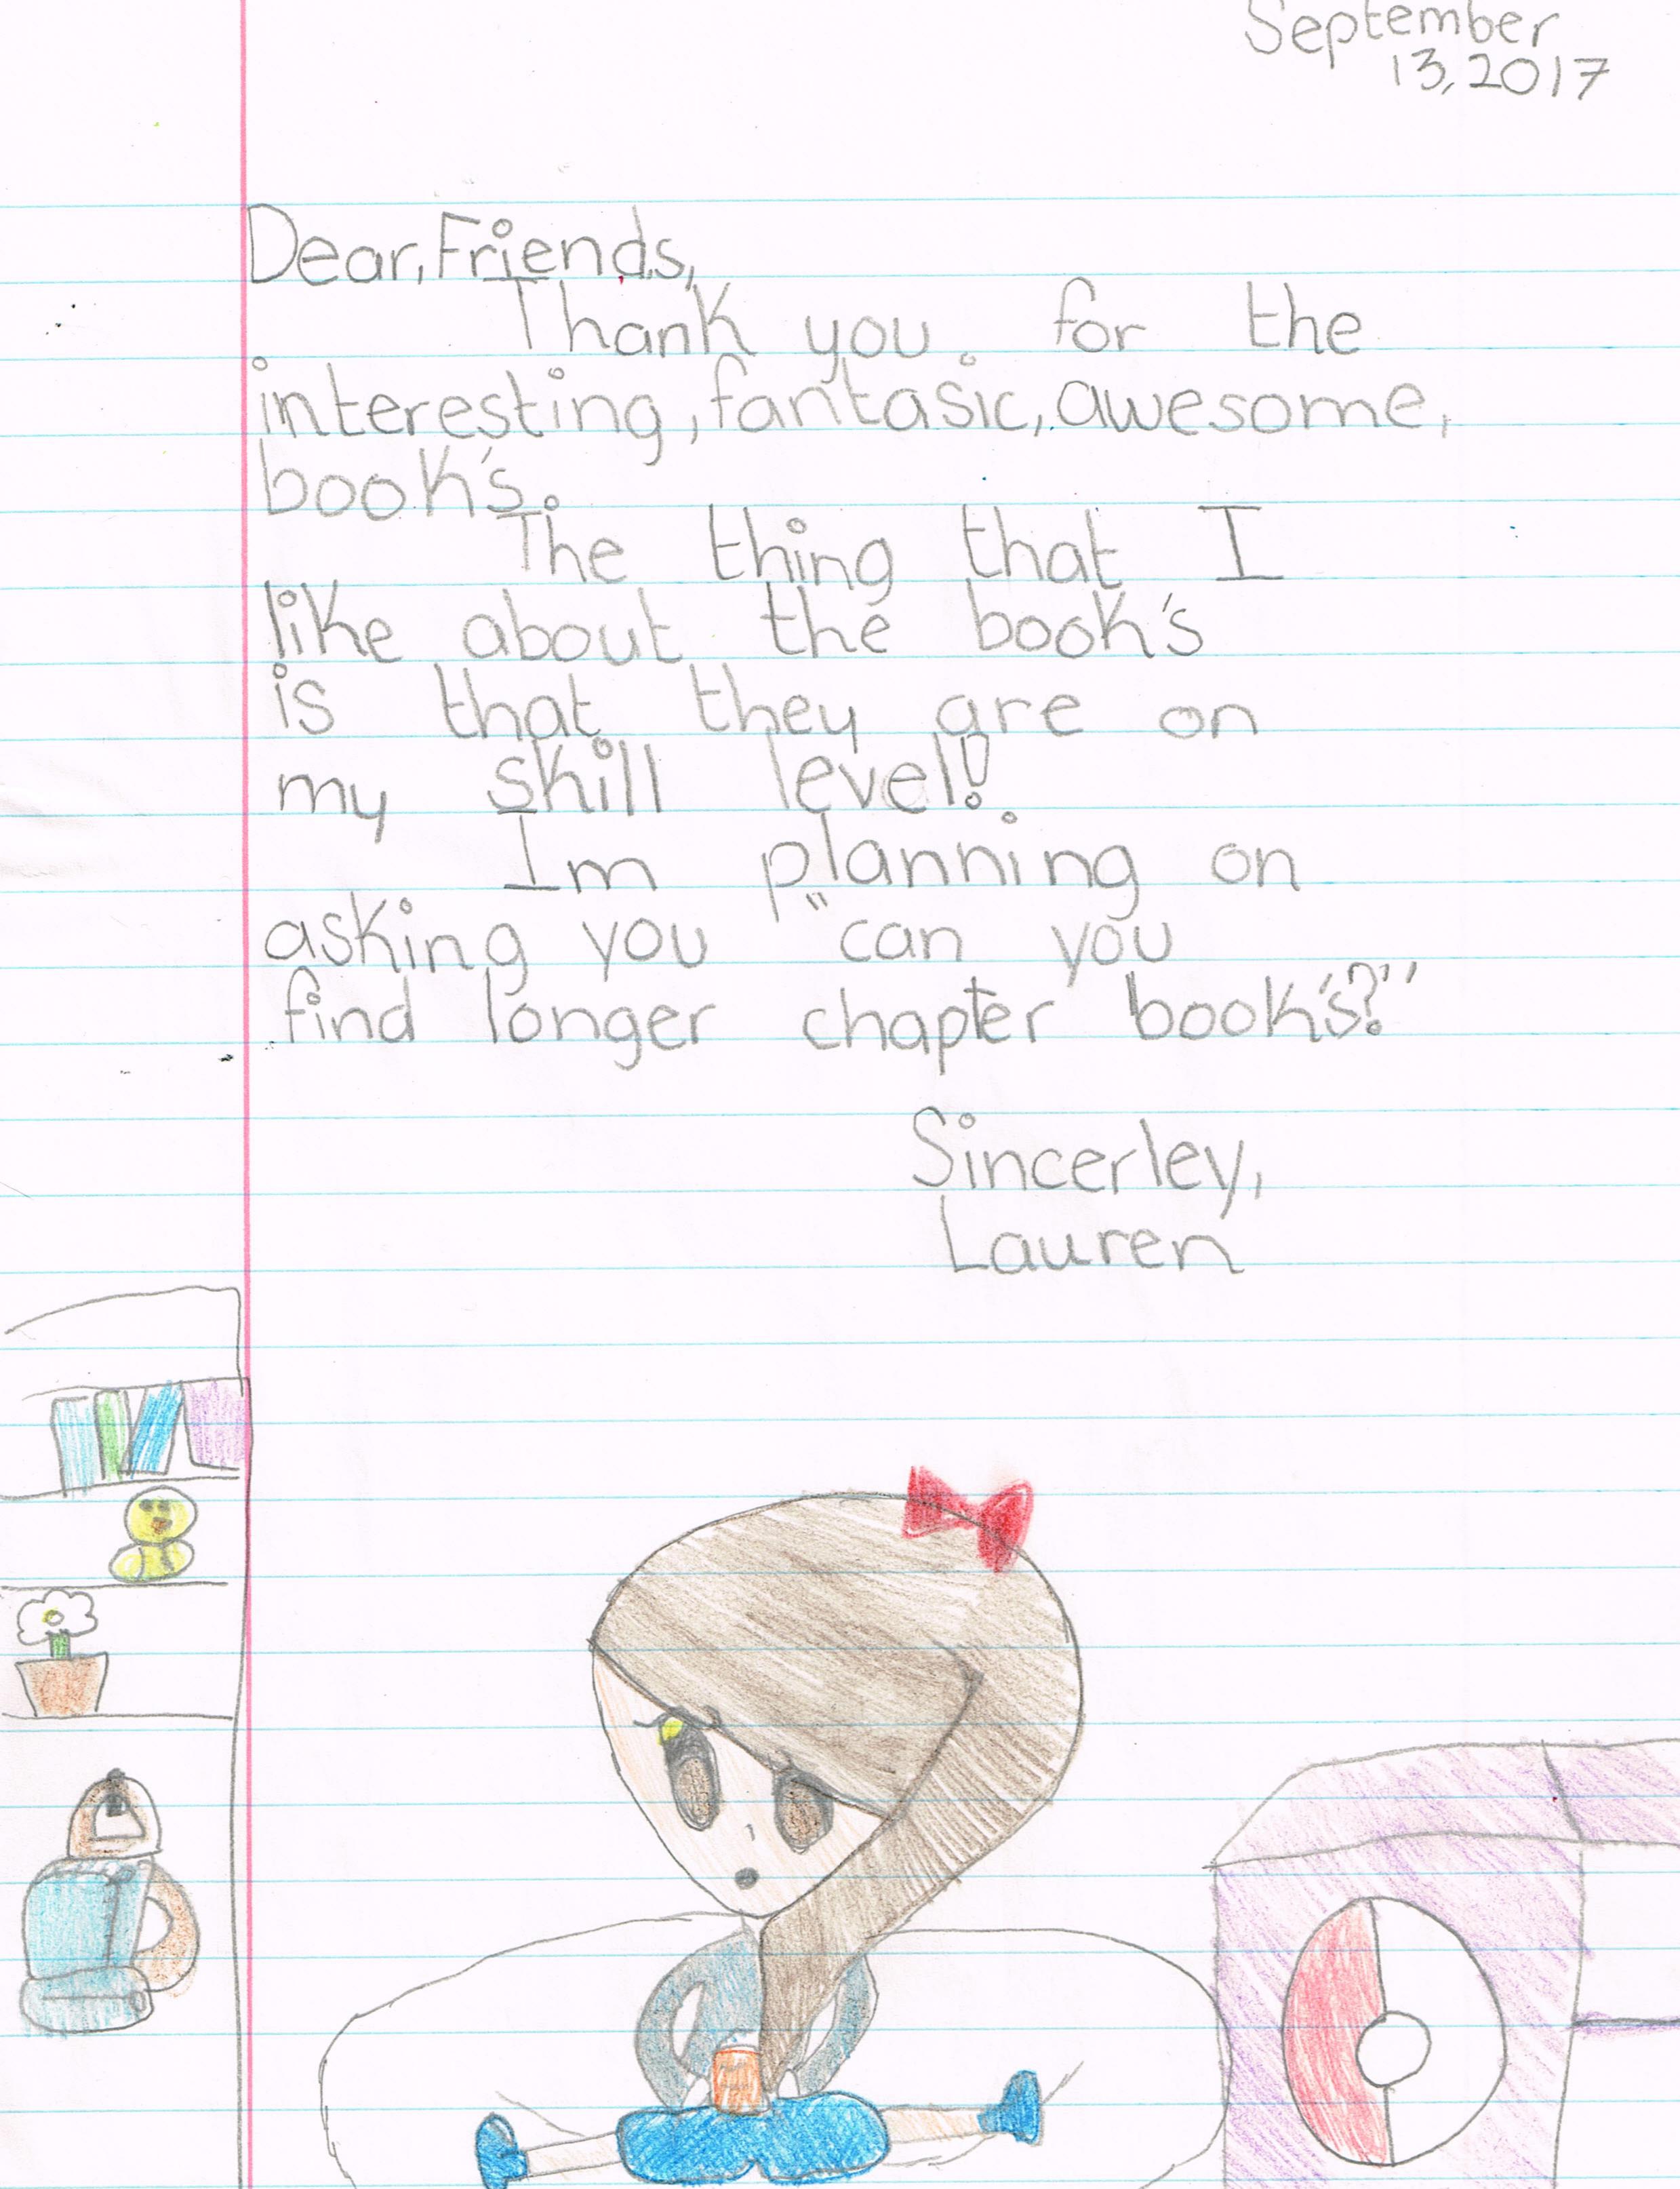 September
13, 2017
Dear, Friends,
Thank you. for the
interesting, fantasic, awesome,
book's.
The thing that I
like about the book's
is that they are on
my skill level!
Im planning on
asking you "can you
find longer chapter book's?"
Sincerley,
Lauren